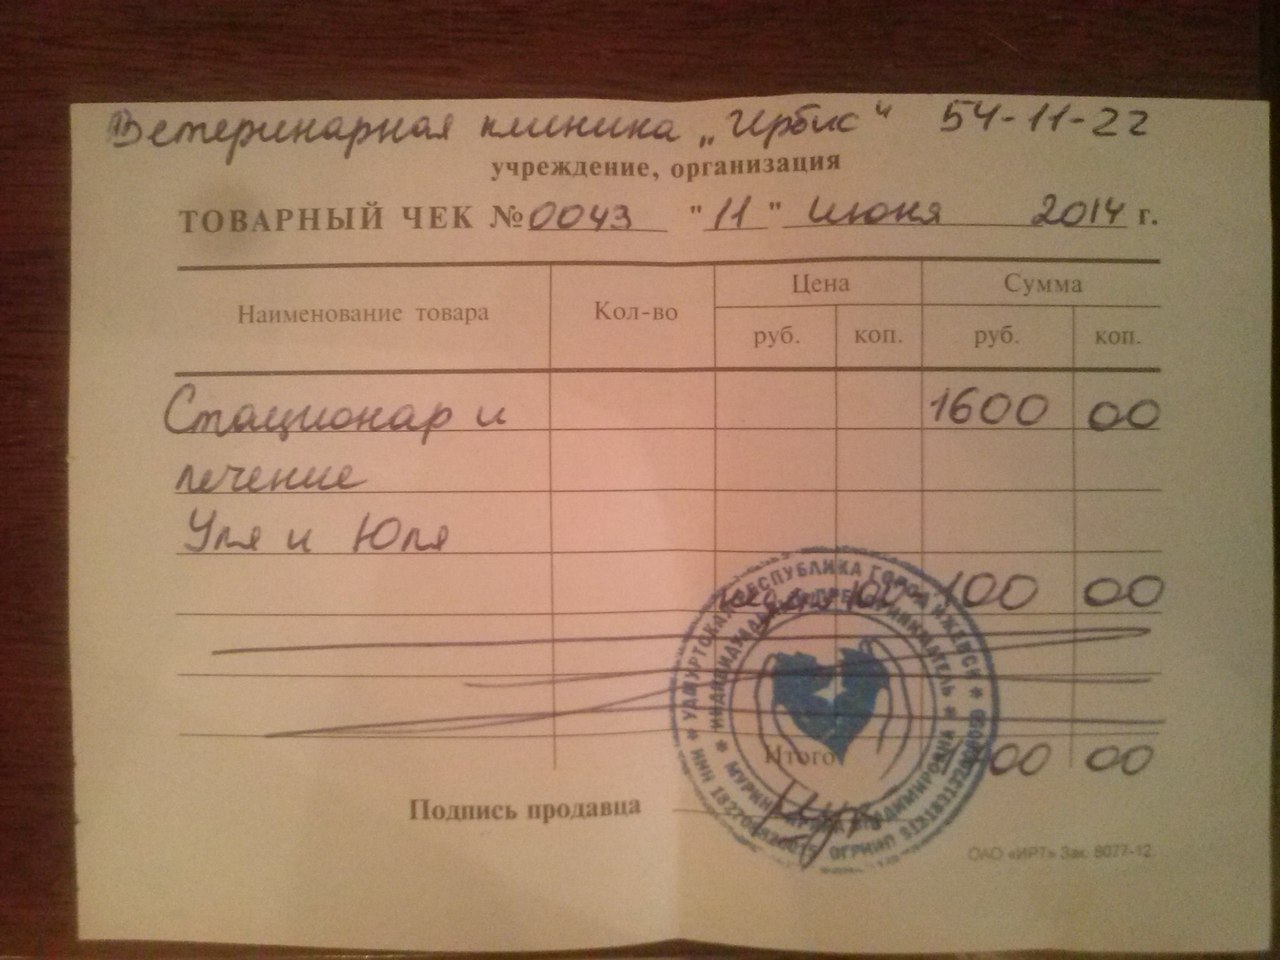 Ветеринарная клиника „Ирбис“ 54-11-22
учреждение, организация
ТОВАРНЫЙ ЧЕК №0043 "11" июня 2014 г.
Наименование товара Кол-во Цена Сумма
руб. коп. руб. коп.
Стационар и 1600 00
лечение
Уля и Юля
100 00
Итого 00 00
Подпись продавца
УДМУРТСКАЯ РЕСПУБЛИКА ГОРОД ИЖЕВСК
ИНДИВИДУАЛЬНЫЙ ПРЕДПРИНИМАТЕЛЬ
ВЛАДИМИРОВНА
ИНН
ОГРНИП
ОАО «ИРТ» Зак. 8077-12